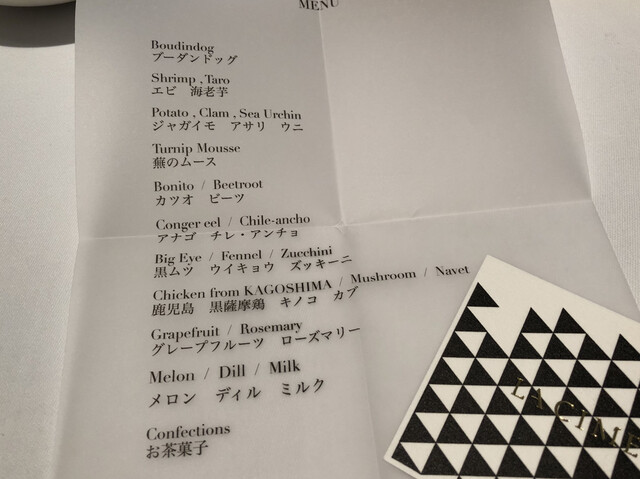 MENU
Boudindog
ブーダンドッグ
Shrimp , Taro
エビ 海老芋
Potato , Clam , Sea Urchin
ジャガイモ アサリ ウニ
Turnip Mousse
蕪のムース
Bonito / Beetroot
カツオ ビーツ
Conger eel / Chile-ancho
アナゴ チレ・アンチョ
Big Eye / Fennel / Zucchini
黒ムツ ウイキョウ ズッキーニ
Chicken from KAGOSHIMA / Mushroom / Navet
鹿児島 黒薩摩鶏 キノコ カブ
Grapefruit / Rosemary
グレープフルーツ ローズマリー
Melon / Dill / Milk
メロン ディル ミルク
Confections
お茶菓子
LA CIME